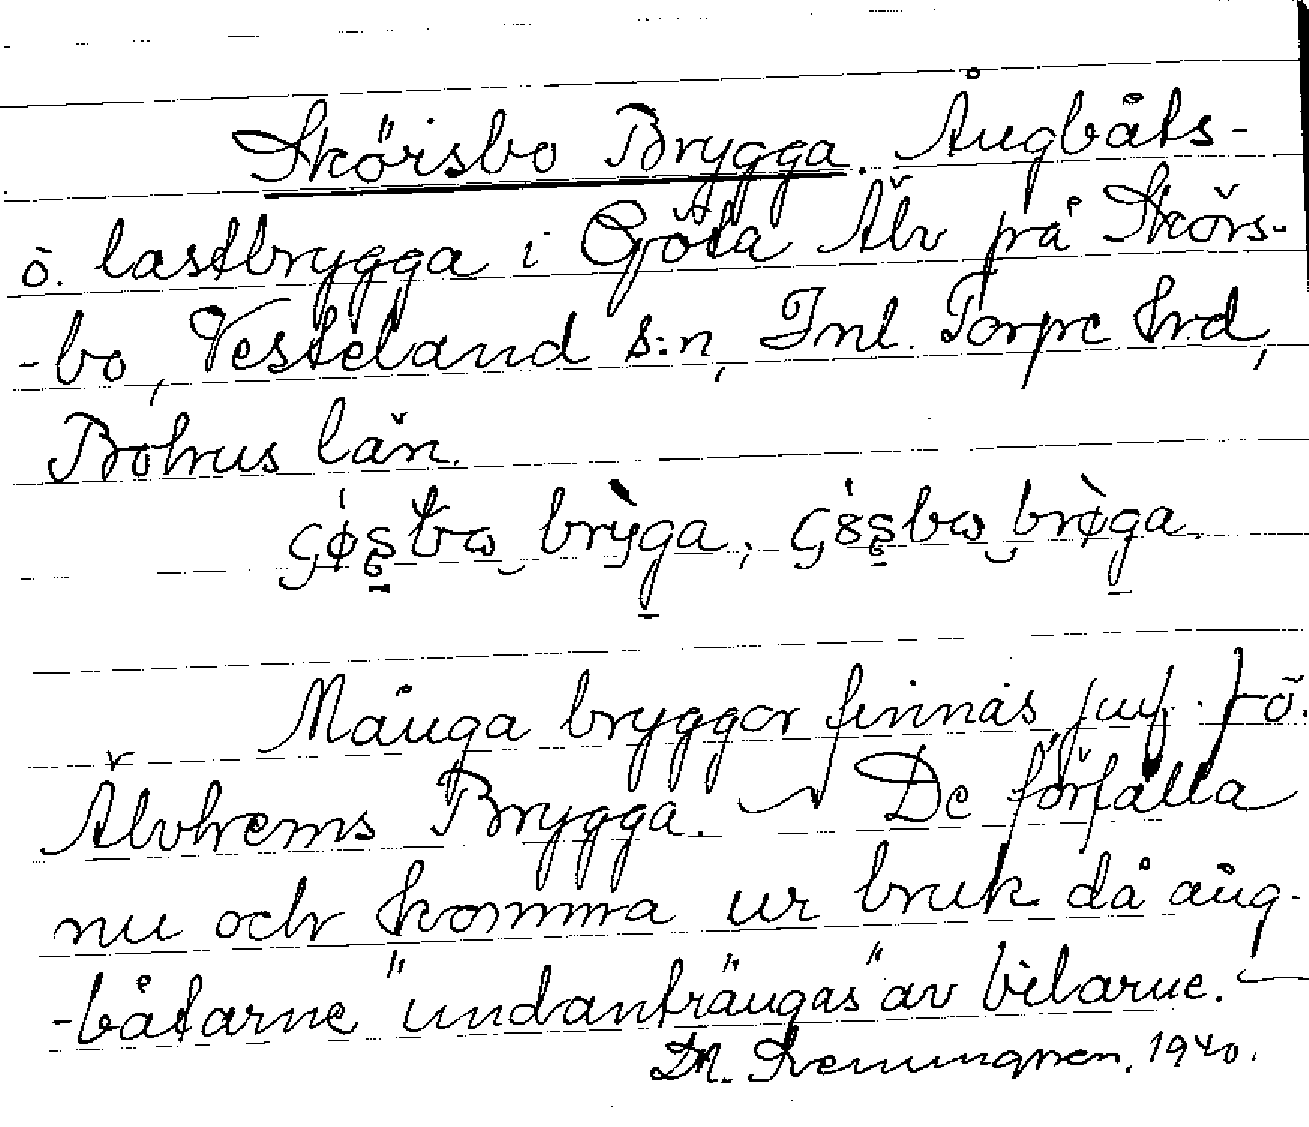 Skörsbo Brygga. Ångbåts-
o. lastbrygga i Göta Älv på Skörs-
-bo, Vesterland s:n, Inl. Torpe hrd,
Bohus län.
bryga, bryga.
Många bryggor finnas jmf. o.
Älvhems Brygga. De förfalla
nu och komma ur bruk då ång-
-båtarne "undanträngas" av bilarne.
1940.